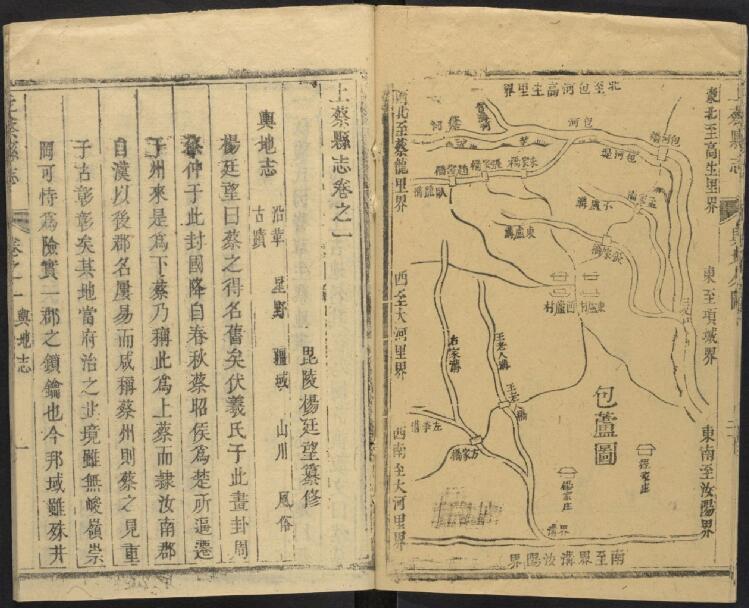 東北至高生里界
東至項城界
東南至汝陽界
北至包河高生里界
包河
包河橋
包河堤
張家橋
朱家橋
趙家橋
臥龍溝
孟家溝
小盧溝
東盧溝
東盧村
西盧村
包蘆圖
王老人溝
王老人橋
右家溝
方家橋
左李溝
程家庄
楊家庄
界溝
南至界溝汝陽界
西北至蔡龍里界
西至大河里界
西南至大河里界
上蔡縣志卷之一
毘陵楊廷望纂修
輿地志
沿革 星野 疆域 山川 風俗
古蹟
楊廷望曰蔡之得名舊矣伏羲氏于此畫卦周
蔡仲于此封國降自春秋蔡昭侯為楚所逼遷
于州來是為下蔡乃稱此為上蔡而隸汝南郡
自漢以後郡名屢易而咸稱蔡州則蔡之見重
于古彰彰矣其地當府治之北境雖無峻嶺崇
岡可恃為險實一郡之鎖鑰也今邦域雖殊井
上蔡縣志
卷之一
輿地志
一